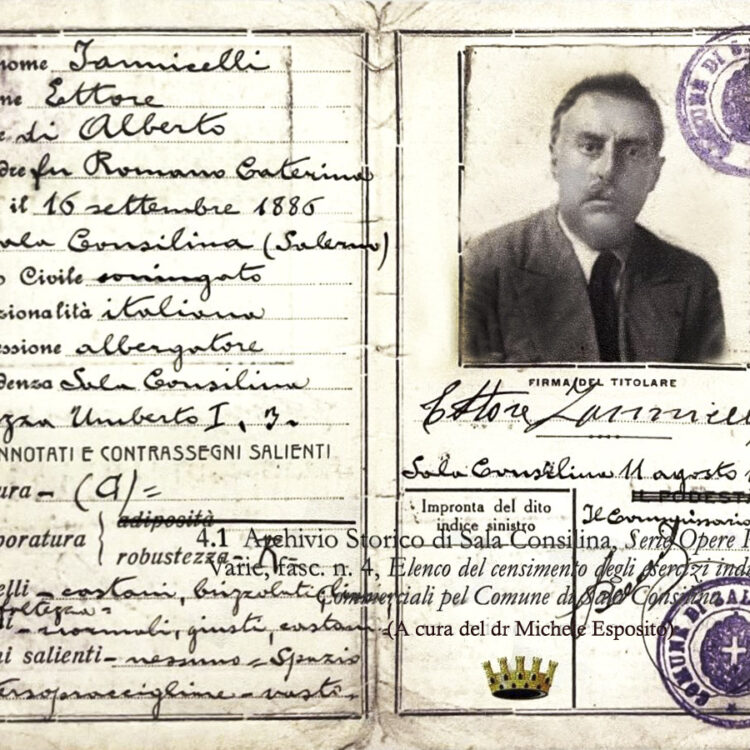 nome Iannicelli
ne Ettore
e di Alberto
dre fu Romano Caterina
il 16 settembre 1886
Sala Consilina (Salerno)
o Civile coniugato
zionalità italiana
essione albergatore
denza Sala Consilina
zza Umberto I, 3.
NNOTATI E CONTRASSEGNI SALIENTI
ura - (a) =
poratura
adiposità
robustezza -
elli - castani, brizzolati,
i - normali, giusti, castani
ni salienti - nessuno = Spazio
intersopracciglime - vasto.
FIRMA DEL TITOLARE
Ettore Iannicelli
Sala Consilina 11 agosto
IL PODESTÀ
Il Commissario
Impronta del dito
indice sinistro
4.1 Archivio Storico di Sala Consilina, Serie Opere
Varie, fasc. n. 4, Elenco del censimento degli esercizi indu
Commerciali pel Comune di Sala Consilina
(A cura del dr Michele Esposito)
COMUNE DI SAL
COMUNE DI SAL